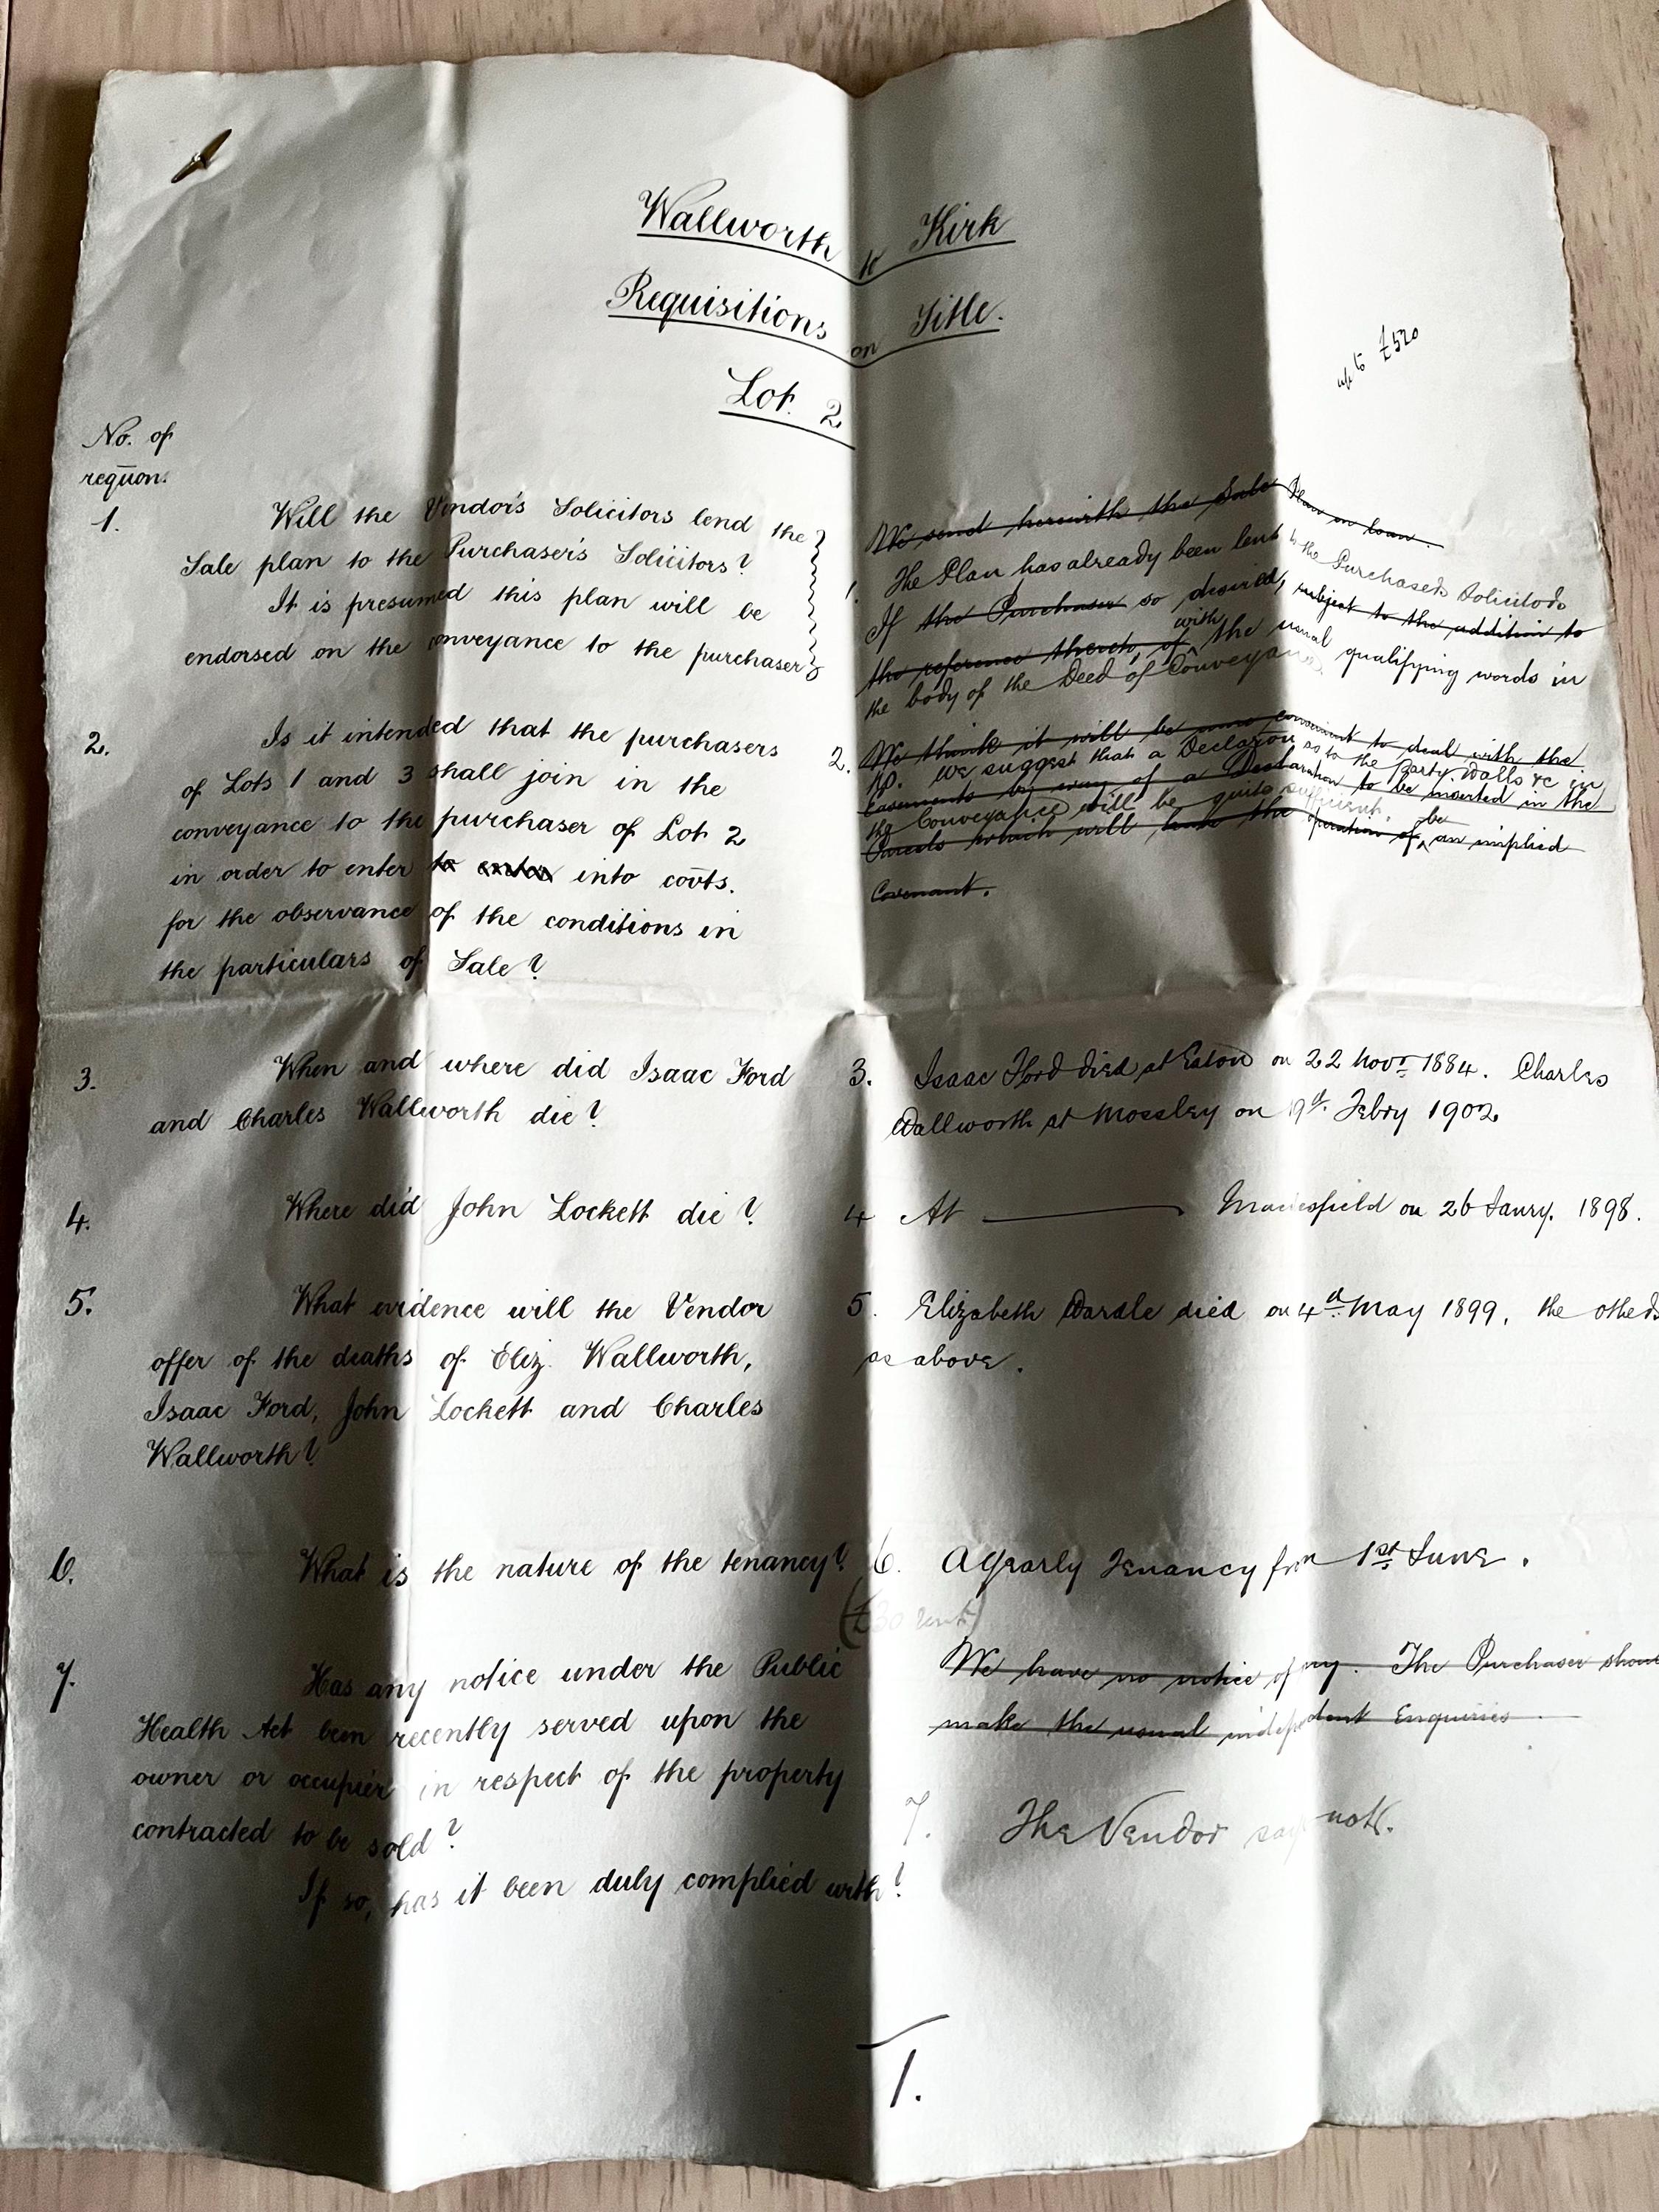 Wallworth to Kirk
Requisitions on Title.
Lot. 2
up to £520
No. of
requon:
1. Will the Vendor's Solicitors lend the
Sale plan to the Purchaser's Solicitors?
It is presumed this plan will be
endorsed on the conveyance to the purchaser?
We send herewith the Sale Plan on loan.
1. The Plan has already been lent to the Purchaser's Solicitors
If the Purchaser so desired, subject to the addition to
the reference thereto, of with the usual qualifying words in
the body of the Deed of Conveyance.
2. Is it intended that the purchasers
of Lots 1 and 3 shall join in the
conveyance to the purchaser of Lot 2
in order to enter to enter into covts.
for the observance of the conditions in
the particulars of Sale?
2. We think it will be more convenient to deal with the
No. We suggest that a Declaration as to the Party Walls &c in
Easements by way of a Declaration to be inserted in the
the Conveyance will be quite sufficient.
Parcels which will have the operation of be an implied
Covenant.
3. When and where did Isaac Ford
and Charles Wallworth die?
3. Isaac Ford died at Eaton on 22 Novr 1884. Charles
Wallworth at Mossley on 19th. Febry 1902
4. Where did John Lockett die?
4 At ——— Macclesfield on 26 Janry. 1898.
5. What evidence will the Vendor
offer of the deaths of Eliz. Wallworth,
Isaac Ford, John Lockett and Charles
Wallworth?
5. Elizabeth died on 4th May 1899, the others
as above.
6. What is the nature of the tenancy?
6. A Yearly Tenancy from 1st June.
(£30 rent)
7. Has any notice under the Public
Health Act been recently served upon the
owner or occupier in respect of the property
contracted to be sold?
If so, has it been duly complied with?
We have no notice of any. The Purchaser should
make the usual independent Enquiries
7. The Vendor says not.
1.